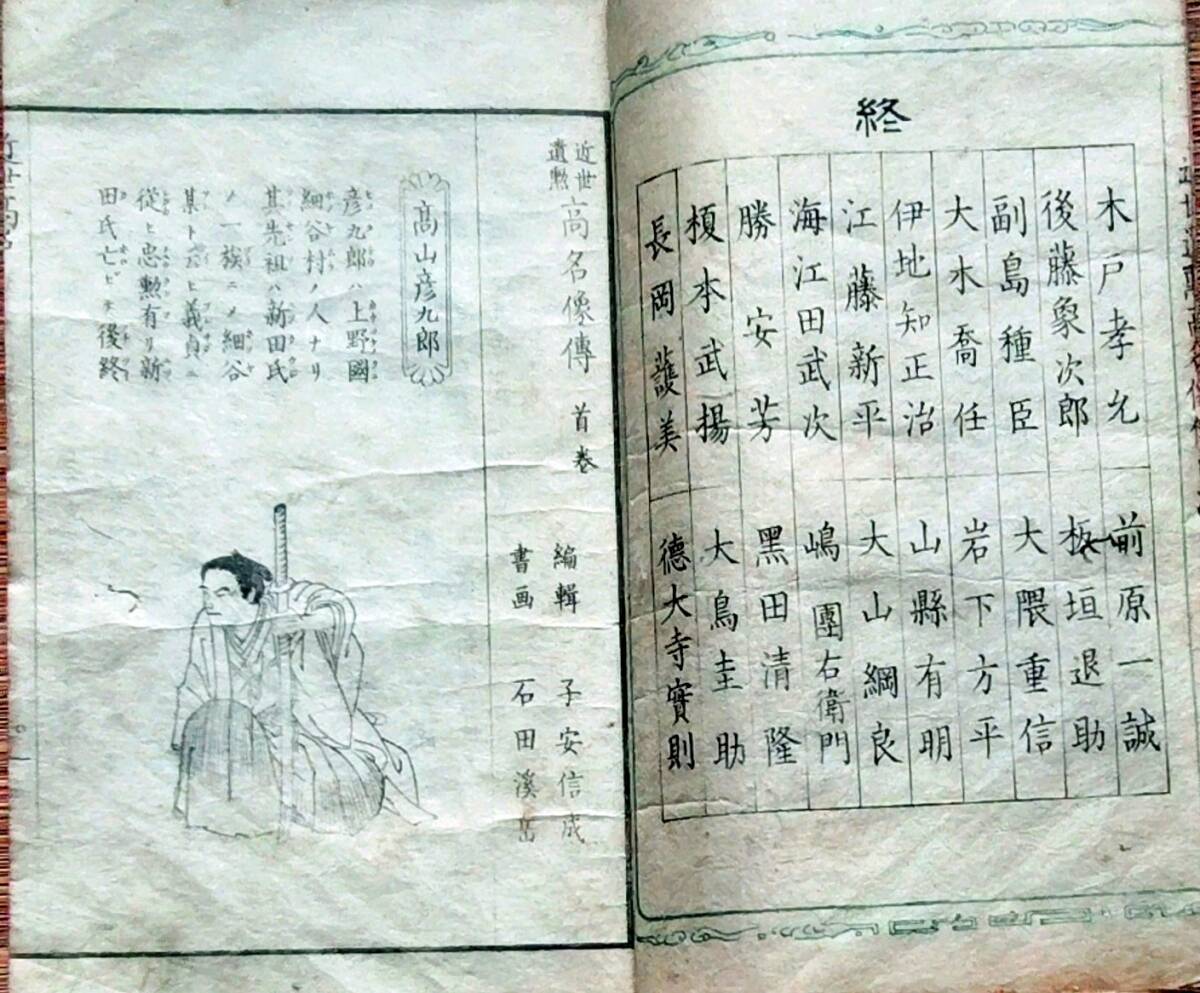 終
木戸孝允
後藤象次郎
副島種臣
大木喬任
伊地知正治
江藤新平
海江田武次
勝安芳
榎本武揚
長岡護美
前原一誠
板垣退助
大隈重信
岩下方平
山縣有明
大山綱良
嶋團右衛門
黒田清隆
大鳥圭助
德大寺實則
近世
遺勲
高名像傳 首卷
編輯 子安信成
書画 石田溪岳
髙山彦九郎
彦九郎ハ上野國
細谷村ノ人ナリ
其先祖ハ新田氏
ノ一族ニメ細谷
某ト云ヒ義貞ニ
從ヒ忠勲有リ新
田氏亡ビテ後終